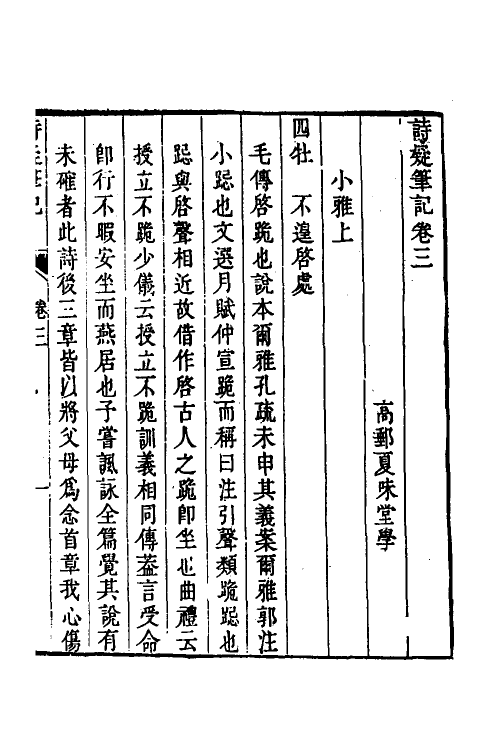 詩疑筆記卷三
高郵夏味堂學
小雅上
四牡　不遑啓處
毛傳啓跪也說本爾雅孔疏未申其義案爾雅郭注
小跽也文選月賦仲宣跪而稱曰注引聲類跪跽也
跽與啓聲相近故借作啓古人之跪卽坐也曲禮云
授立不跪少儀云授立不跪訓義相同傳葢言受命
卽行不暇安坐而燕居也予嘗諷詠全篇覺其說有
未確者此詩後三章皆以將父母爲念首章我心傷
卷三
一